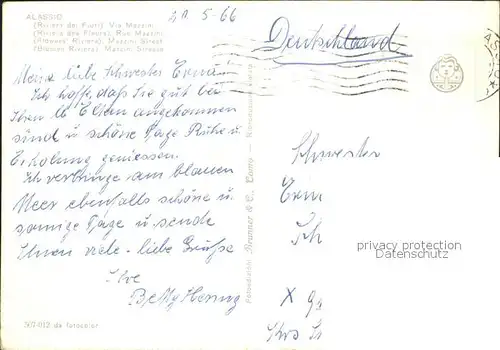 ALASSIO
(Riviera dei Fiori) Via Mazzini
(Riviera des Fleurs) Rue Mazzini
(Flowers' Riviera) Mazzini Street
(Blumen Riviera) Mazzini Strasse
20.5.66
Deutschland
Meine liebe Schwester Erni!
Ich hoffe, daß Sie gut bei
Ihren lb Eltern angekommen
sind u schöne Tage Ruhe u.
Erholung geniessen.
Ich verbringe am blauen
Meer ebenfalls schöne u.
sonnige Tage u. sende
Ihnen viele liebe Grüße
Ihre
Hennig
507-012 da fotocolor
Fotoedizioni Brunner & C., Como
Schwester
Erni
Sch
X
privacy protection
AnsichtskartenVersand